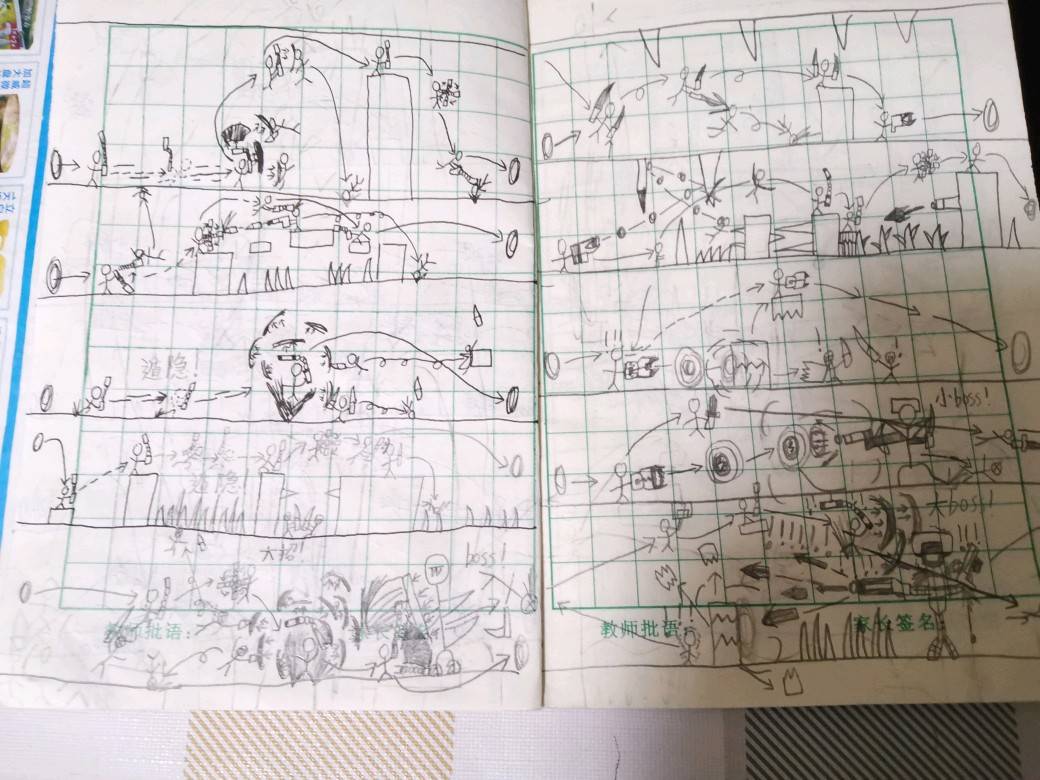 遁隐!
遁隐
大招!
boss!
教师批语:
家长签名:
小boss!
大boss!
教师批语:
家长签名: